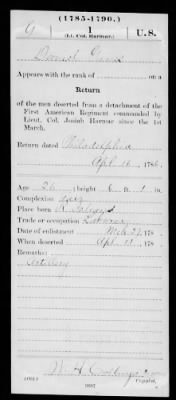 (1785-1790.)
G 1 U.S.
(Lt. Col. Harmar.)
Appears with the rank of on a
Return
of the men deserted from a detachment of the
First American Regiment commanded by
Lieut. Col. Josiah Harmar since the 1st
March.
Return dated Philadelphia
Apr. 16, 178
Age 26 height 6 ft. 1 in.
Complexion
Place born R. Island
Trade or occupation
Date of enlistment Mch 27, 178
When deserted Apr. 12, 178
Remarks:
Artillery
Copyist.